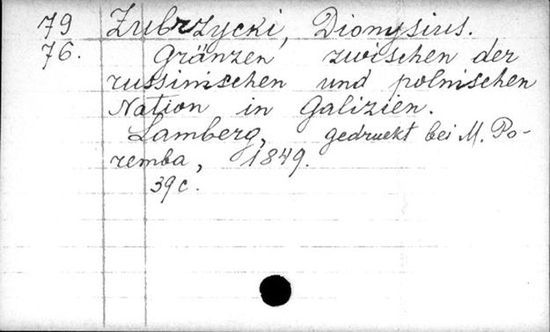 79 Zubrzycki, Dionysius.
76. Gränzen zwischen der
russinischen und polnischen
Nation in Galizien.
Lamberg, gedruckt bei M. Po-
remba, 1849.
39c.